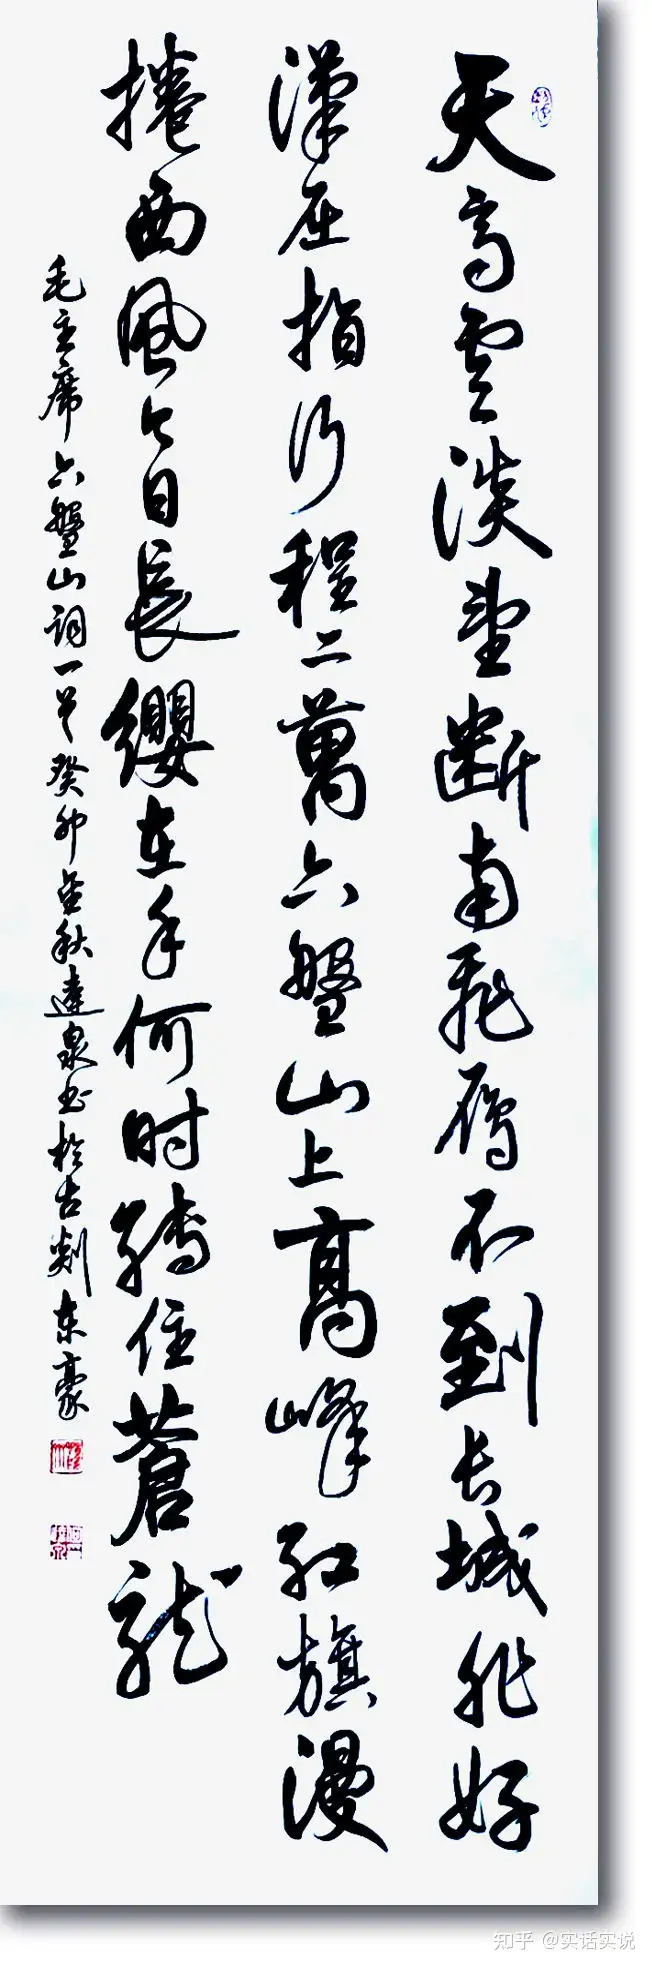 天高雲淡望斷南飛雁不到长城非好
漢屈指行程二萬六盤山上高峰红旗漫
捲西風今日長纓在手何时縛住蒼龍
毛主席六盤山词一首癸卯金秋達泉书於古剡东豪
知乎 @实话实说